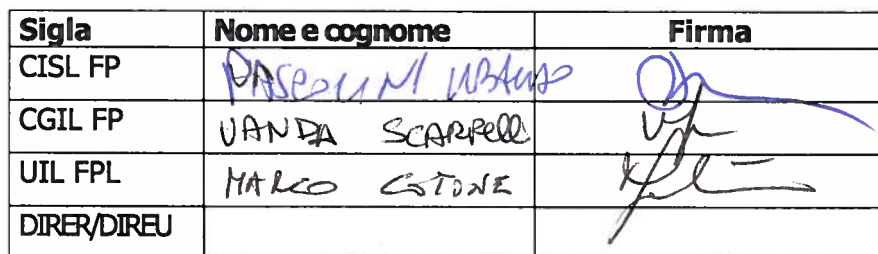 Sigla Nome e cognome Firma
CISL FP PASCOLINI URBANO
CGIL FP VANDA SCARPELLI
UIL FPL MARCO COTONE
DIRER/DIREU